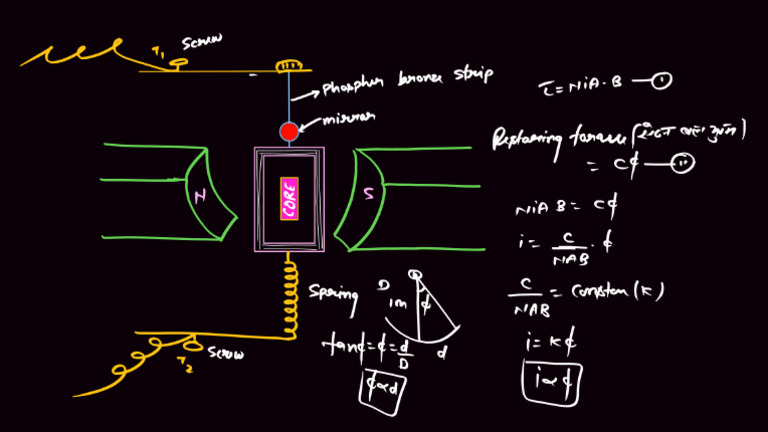 T₁ Screw
Phosphur bronze strip
mirror
N
CORE
S
Spring
T₂ Screw
D
1m
ϕ
d
tanϕ = ϕ = d/D
ϕ ∝ d
τ = NiA·B —(i)
Restoring
= Cϕ —(ii)
NiAB = Cϕ
i = C/NAB · ϕ
C/NAB = constan(K)
i = Kϕ
i ∝ ϕ